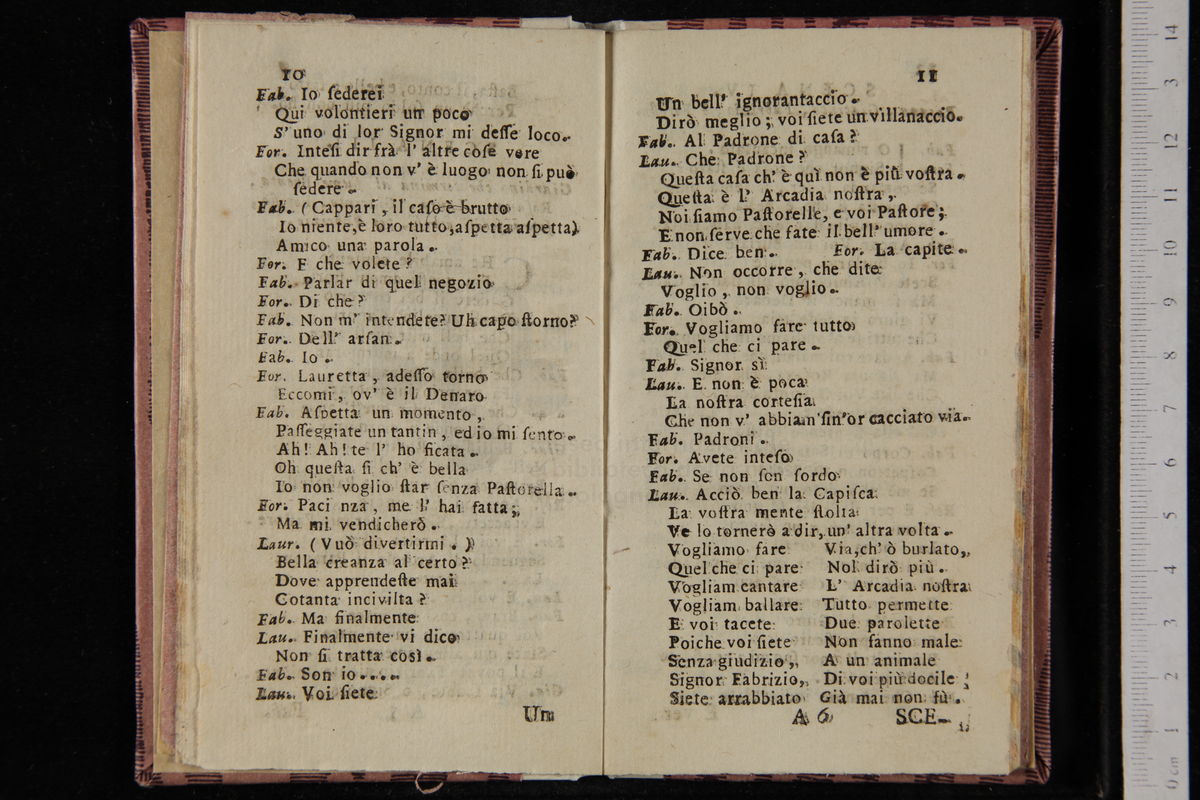 10
Fab. Io ſederei
Qui volontieri un poco
S' uno di lor Signor mi deſſe loco.
For. Inteſi dir frà l' altre coſe vere
Che quando non v' è luogo non ſi può
ſedere.
Fab. (Cappari, il caſo è brutto
Io niente, è loro tutto, aſpetta aſpetta)
Amico una parola.
For. E che volete?
Fab. Parlar di quel negozio
For. Di che?
Fab. Non m' intendete? Uh capo ſtorno?
For. Dell' arſan.
Fab. Io.
For. Lauretta, adeſſo torno
Eccomi, ov' è il Denaro
Fab. Aſpetta un momento,
Paſſeggiate un tantin, ed io mi ſento.
Ah! Ah! te l' ho ficata.
Oh queſta ſi ch' è bella
Io non voglio ſtar ſenza Paſtorella.
For. Paci nza, me l' hai fatta;
Ma mi vendicherò.
Laur. (Vuò divertirmi.)
Bella creanza al certo?
Dove apprendeſte mai
Cotanta inciviltà?
Fab. Ma finalmente
Lau. Finalmente vi dico
Non ſi tratta così.
Fab. Son io....
Lau. Voi ſiete
Un
11
Un bell' ignorantaccio.
Dirò meglio; voi ſiete un villanaccio.
Fab. Al Padrone di caſa?
Lau. Che Padrone?
Queſta caſa ch' è quì non è più voſtra.
Queſta è l' Arcadia noſtra,
Noi ſiamo Paſtorelle, e voi Paſtore;
E non ſerve che fate il bell' umore.
Fab. Dice ben. For. La capite.
Lau. Non occorre, che dite
Voglio, non voglio.
Fab. Oibò.
For. Vogliamo fare tutto
Quel che ci pare.
Fab. Signor sì
Lau. E non è poca
La noſtra corteſia
Che non v' abbiam ſin'or cacciato via.
Fab. Padroni.
For. Avete inteſo
Fab. Se non ſen ſordo
Lau. Acciò ben la Capiſca
La voſtra mente ſtolta
Ve lo tornerò a dir, un' altra volta.
Vogliamo fare Via, ch' ò burlato,
Quel che ci pare Nol dirò più.
Vogliam cantare L' Arcadia noſtra
Vogliam ballare Tutto permette
E voi tacete Due parolette
Poiche voi ſiete Non fanno male
Senza giudizio, A un animale
Signor Fabrizio, Di voi più docile
Siete arrabbiato Già mai non fù.
A 6 SCE-